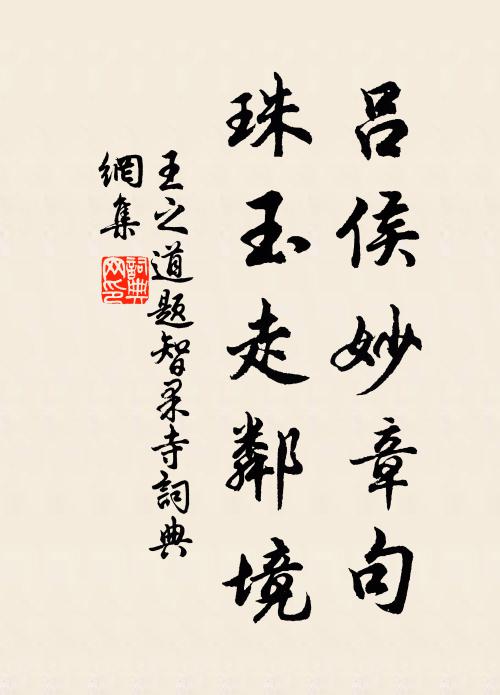 吕侯妙章句
珠玉走鄰境
王之道題智果寺詞典
網集
詞典網印